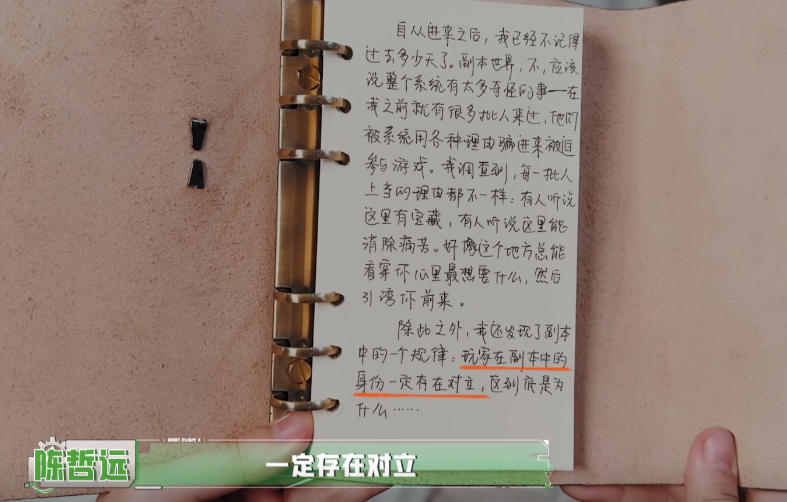 自从进来之后，我已经不记得
过去多少天了。副本世界，不，应该
说整个系统有太多奇怪的事——在
我之前就有很多批人来过，他们
被系统用各种理由骗进来被迫
参与游戏。我调查到，每一批人
上当的理由都不一样：有人听说
这里有宝藏，有人听说这里能
消除病苦。好像这个地方总能
看穿你心里最想要什么，然后
引诱你前来。
除此之外，我还发现了副本
中的一个规律：玩家在副本中的
身份一定存在对立，这到底是为
什么……
陈哲远
一定存在对立